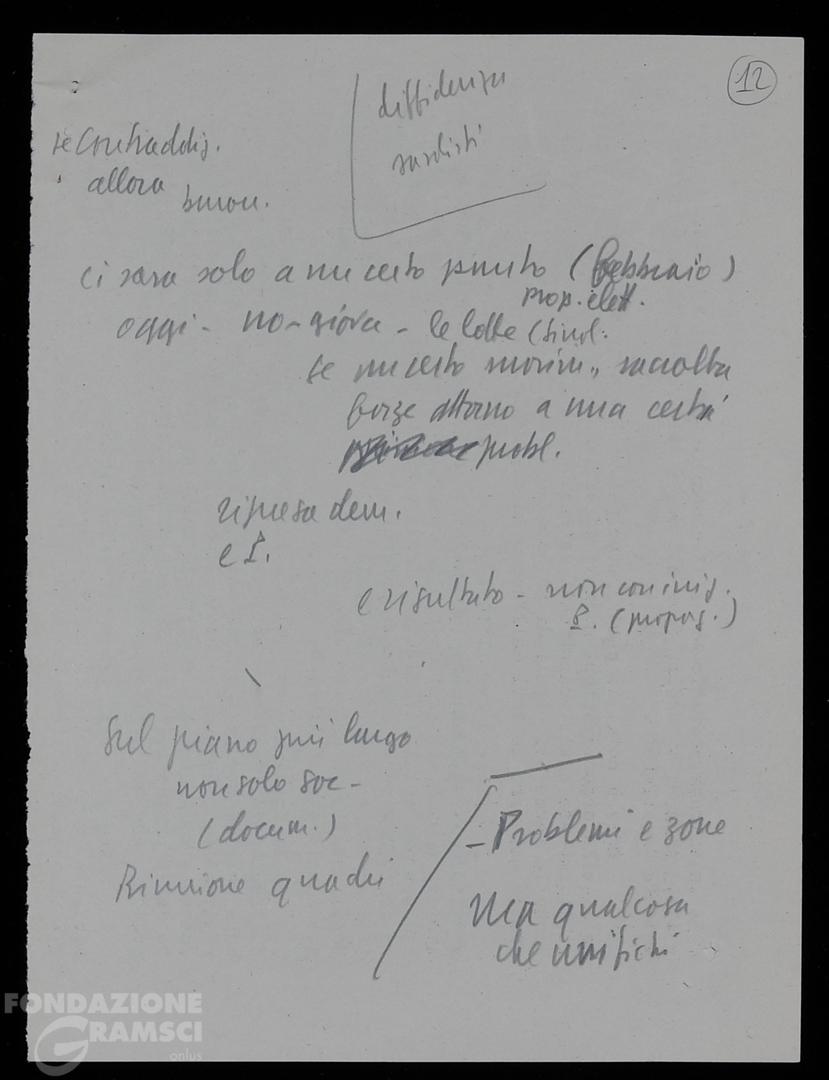 12
diffidenza
sardisti
se contraddiz.
allora buon.
ci sarà solo a un certo punto (febbraio)
prop. elett.
oggi - no - giova - le lotte (sind.
se un certo movim., raccolta
forze attorno a una certa
probl.
ripresa dem.
e P.
e risultato - non
P. (propos.)
Sul piano più largo
non solo soc -
(docum.)
Riunione quadri
- Problemi e zone
Ma qualcosa
che unifichi
FONDAZIONE
GRAMSCI
onlus